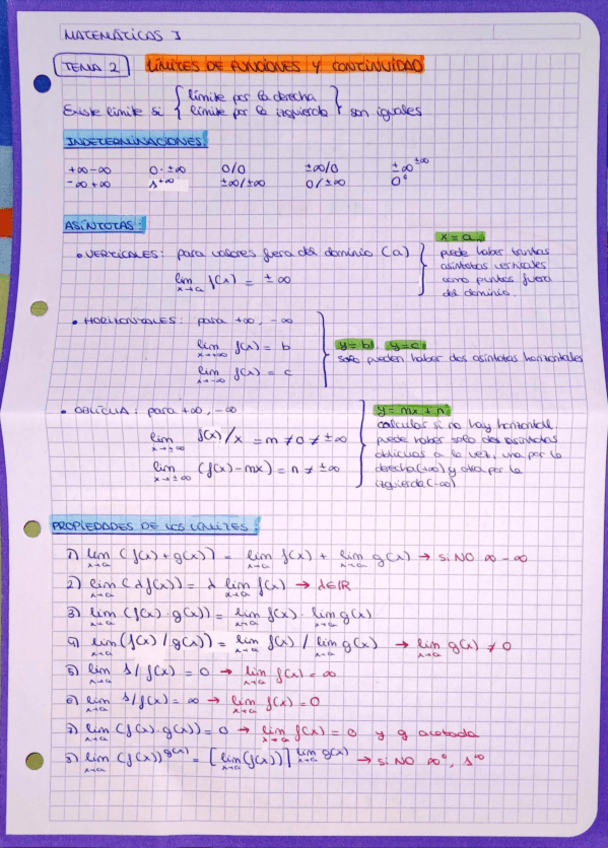 MATEMÁTICAS I
TEMA 2 LÍMITES DE FUNCIONES Y CONTINUIDAD
Existe límite si { límite por la derecha
límite por la izquierda } son iguales
INDETERMINACIONES:
+∞-∞ 0·±∞ 0/0 ±∞/0 ±∞^±∞
-∞+∞ 1^+∞ ±∞/±∞ 0/±∞ 0⁰
ASÍNTOTAS:
• VERTICALES: para valores fuera del dominio (a)
lim x→a f(x) = ±∞
x=a
puede haber tantas
asíntotas verticales
como puntos fuera
del dominio.
• HORIZONTALES: para +∞, -∞
lim x→+∞ f(x) = b
lim x→-∞ f(x) = c
y=b y=c
solo pueden haber dos asíntotas horizontales
• OBLICUA: para +∞, -∞
lim x→±∞ f(x)/x = m ≠ 0 ≠ ±∞
lim x→±∞ (f(x)-mx) = n ≠ ±∞
y=mx+n
calcular si no hay horizontal
puede haber solo dos asíntotas
oblicuas a la vez, una por la
derecha(+∞) y otra por la
izquierda(-∞)
PROPIEDADES DE LOS LÍMITES:
1) lim x→a (f(x)+g(x)) = lim x→a f(x) + lim x→a g(x) → si NO ∞-∞
2) lim x→a (λf(x)) = λ lim x→a f(x) → λ∈ℝ
3) lim x→a (f(x)·g(x)) = lim x→a f(x) · lim x→a g(x)
4) lim x→a (f(x)/g(x)) = lim x→a f(x) / lim x→a g(x) → lim x→a g(x) ≠ 0
5) lim x→a 1/f(x) = 0 → lim x→a f(x) = ∞
6) lim x→a 1/f(x) = ∞ → lim x→a f(x) = 0
7) lim x→a (f(x)·g(x)) = 0 → lim x→a f(x) = 0 y g acotada
8) lim x→a (f(x))^g(x) = [lim x→a (f(x))]^lim x→a g(x) → si NO ∞⁰, 1^∞